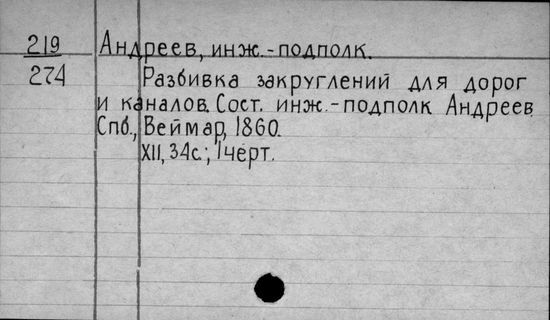 219 Андреев, инж.-подполк.
274 Разбивка закруглений для дорог
и каналов. Сост. инж.-подполк Андреев
Спб., Веймар, 1860.
XII, 34с.; 1черт.